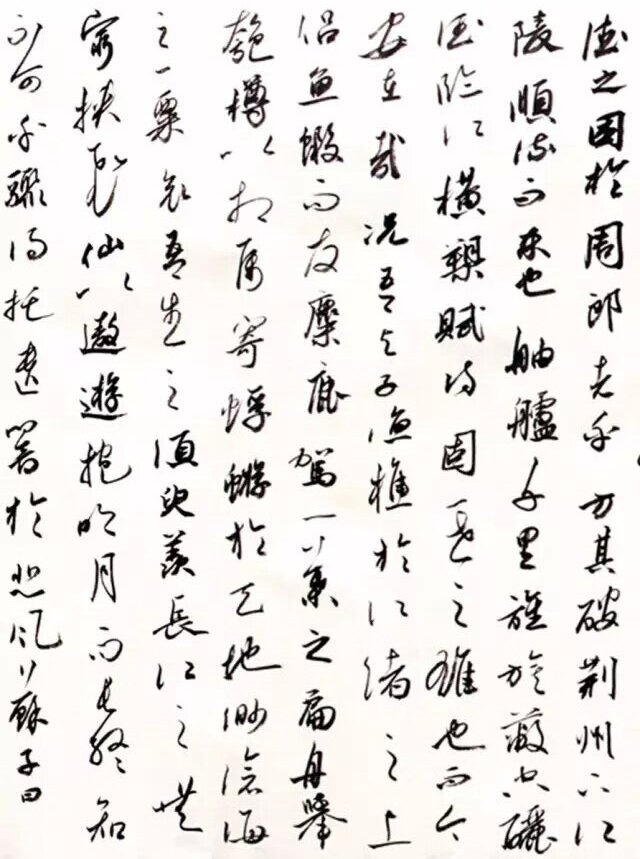 德之困於周郎者乎方其破荆州下江
陵順流而東也舳艫千里旌旗蔽空釃
酒臨江橫槊賦詩固一世之雄也而今
安在哉況吾与子漁樵於江渚之上
侣魚蝦而友麋鹿駕一葉之扁舟舉
匏樽以相属寄蜉蝣於天地渺滄海
之一粟哀吾生之須臾羨長江之無
窮挾飛仙以遨遊抱明月而長終知
不可乎驟得托遺響於悲風蘇子曰